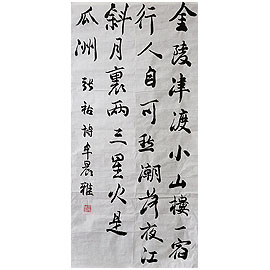 金陵津渡小山樓一宿
行人自可愁潮落夜江
斜月裏兩三星火是
瓜洲 張祜詩牟晨雅